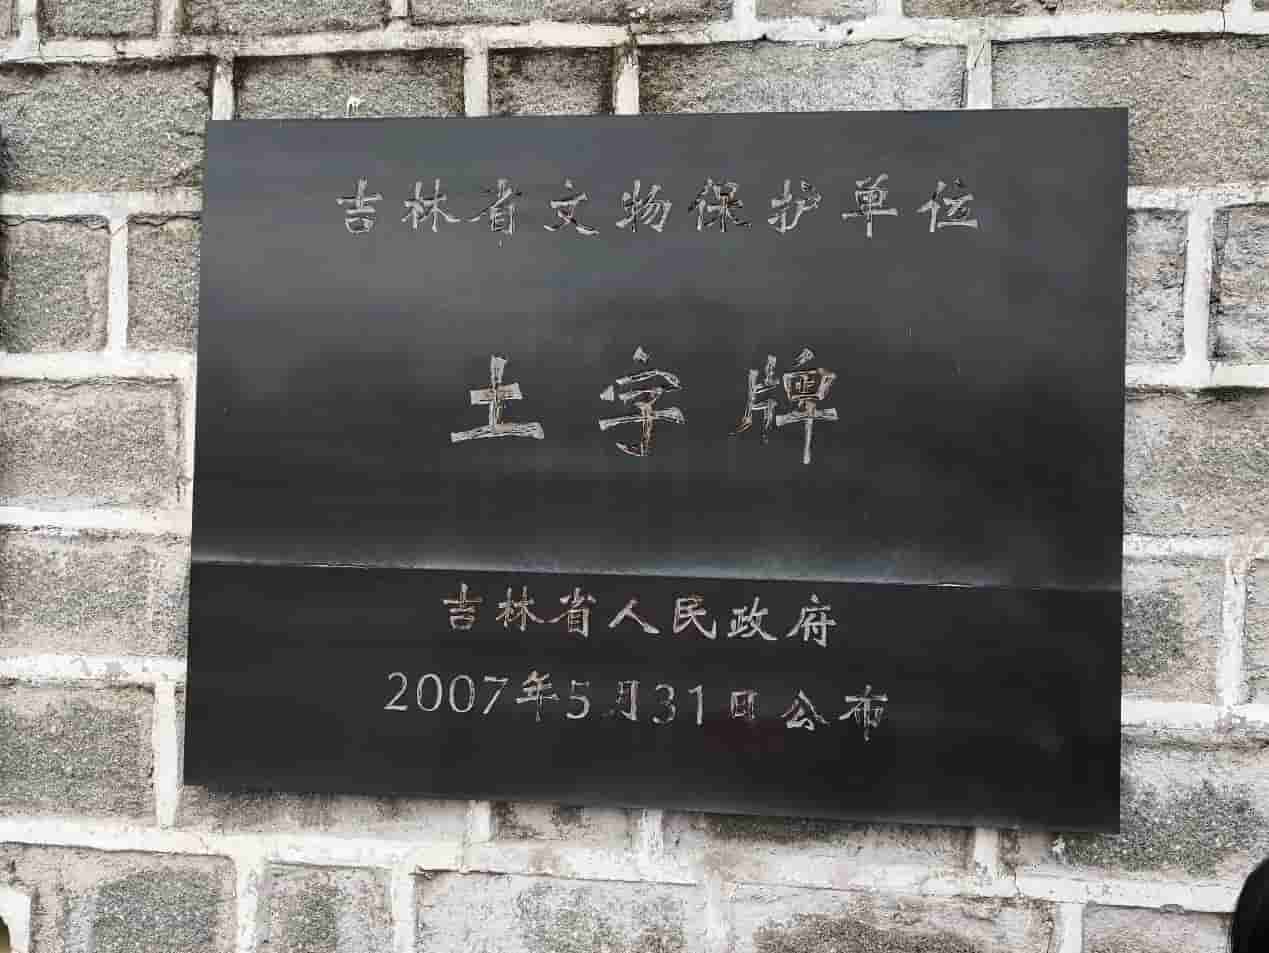 吉林省文物保护单位
土字牌
吉林省人民政府
2007年5月31日公布